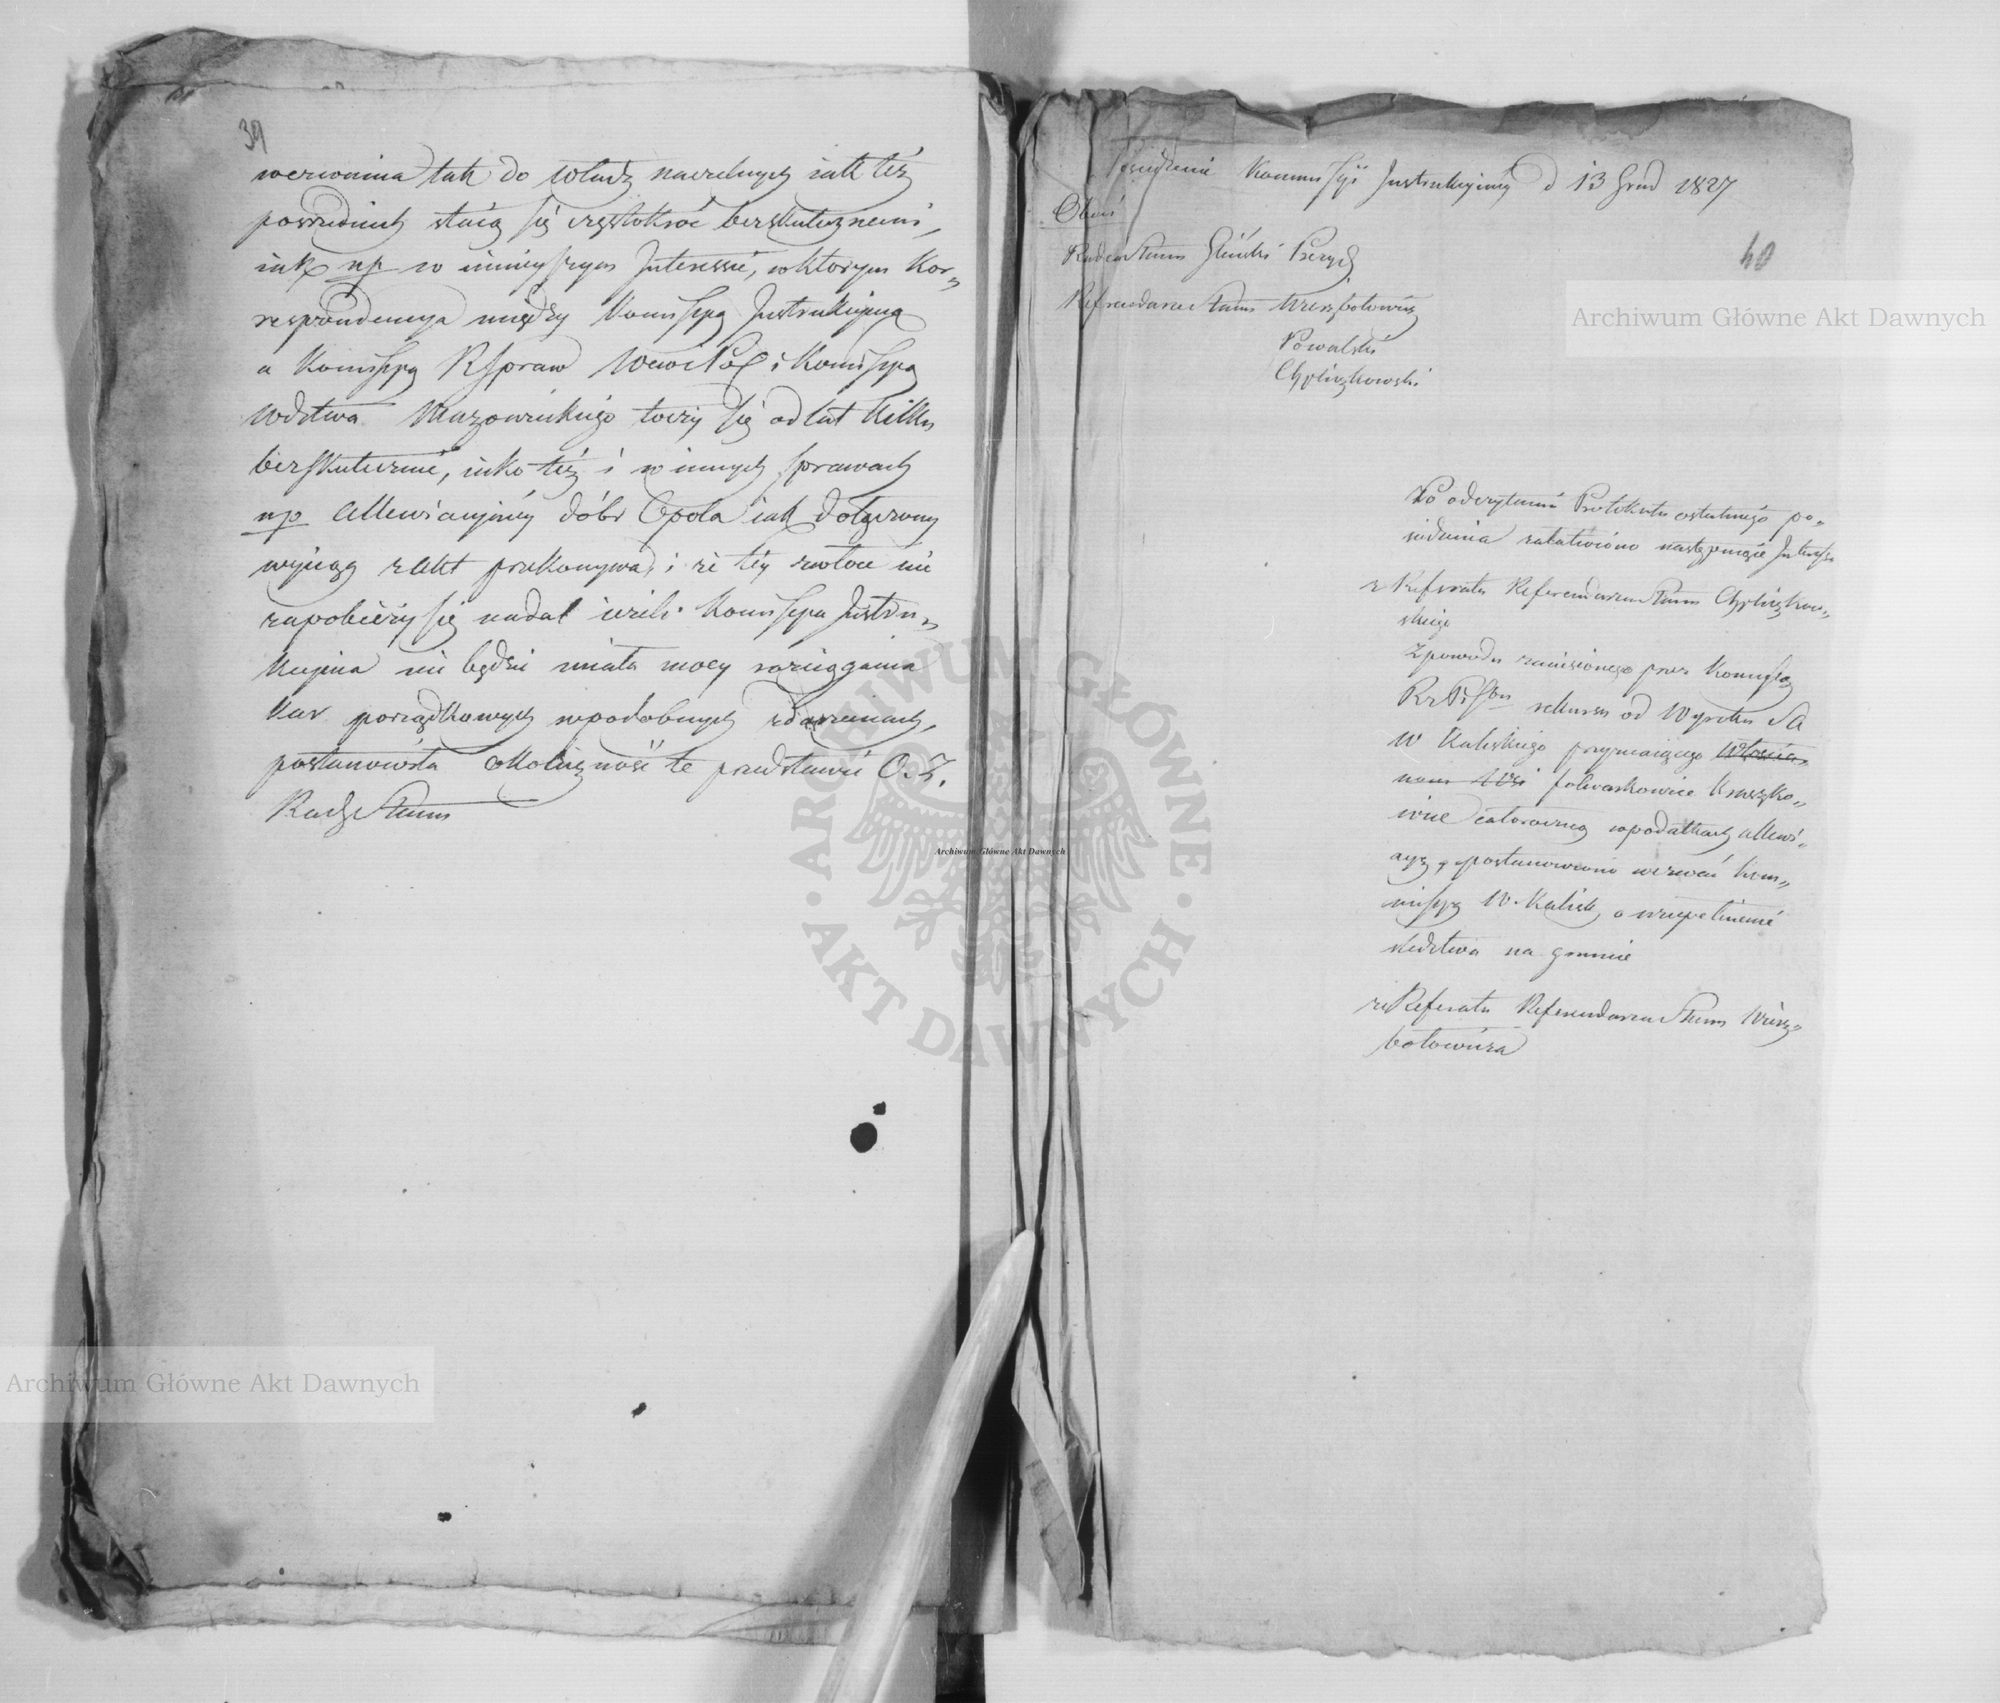 39
wezwania tak do Władz naczelnych iak też
posrednich staią się częstokroć bezskutecznemi,
iak np w ninieyszym Interessie, w ktorym Kor„
respondencya między Kommissyą Instrukcyiną
a Kommissyą R Spraw Wew i Pol i Kommissyą
Wdztwa Mazowieckiego toczy się od lat kilku
bezskutecznie, iako też i w innych sprawach
np allewiacyiney dóbr Opola iak dołączony
wyciąg z akt przekonywa, i że tey zwłoce nie
zapobieży się nadal ieżeli Kommissya Instru„
kcyina nie będzie miała mocy zaciągania
kar porządkowych w podobnych zdarzeniach,
postanowiła okoliczność te przedstawić O. Z.
Radzie Stanu
Posiedzenie Kommissyi Instrukcyiney d 13 Grud 1827
Obecni
40
Radca Stanu Gliński Prezyd
Referendarze Stanu Wierzbołowicz
Powalski
Chyliczkowski
Po odczytaniu Protokułu ostatniego po„
siedzenia załatwiono następuiące Interessa
z Referatu Referendarza Stanu Chyliczkow„
skiego
Z powodu zaniesionego przez Kommissyą
R P i Sbu rekursu od Wyroku SA
W Kaliskiego przyznaiącego Włościa„
nom Wsi folwarkowice Kraszko„
wice całoroczną w podatkach allewi„
acyą, postanowiono wezwać Kom„
missyą W. Kalisk o uzupełnienie
sledztwa na gruncie
z Referatu Referendarza Stanu Wierz„
bołowicza
Archiwum Główne Akt Dawnych
Archiwum Główne Akt Dawnych
Archiwum Główne Akt Dawnych
ARCHIWUM GŁÓWNE AKT DAWNYCH